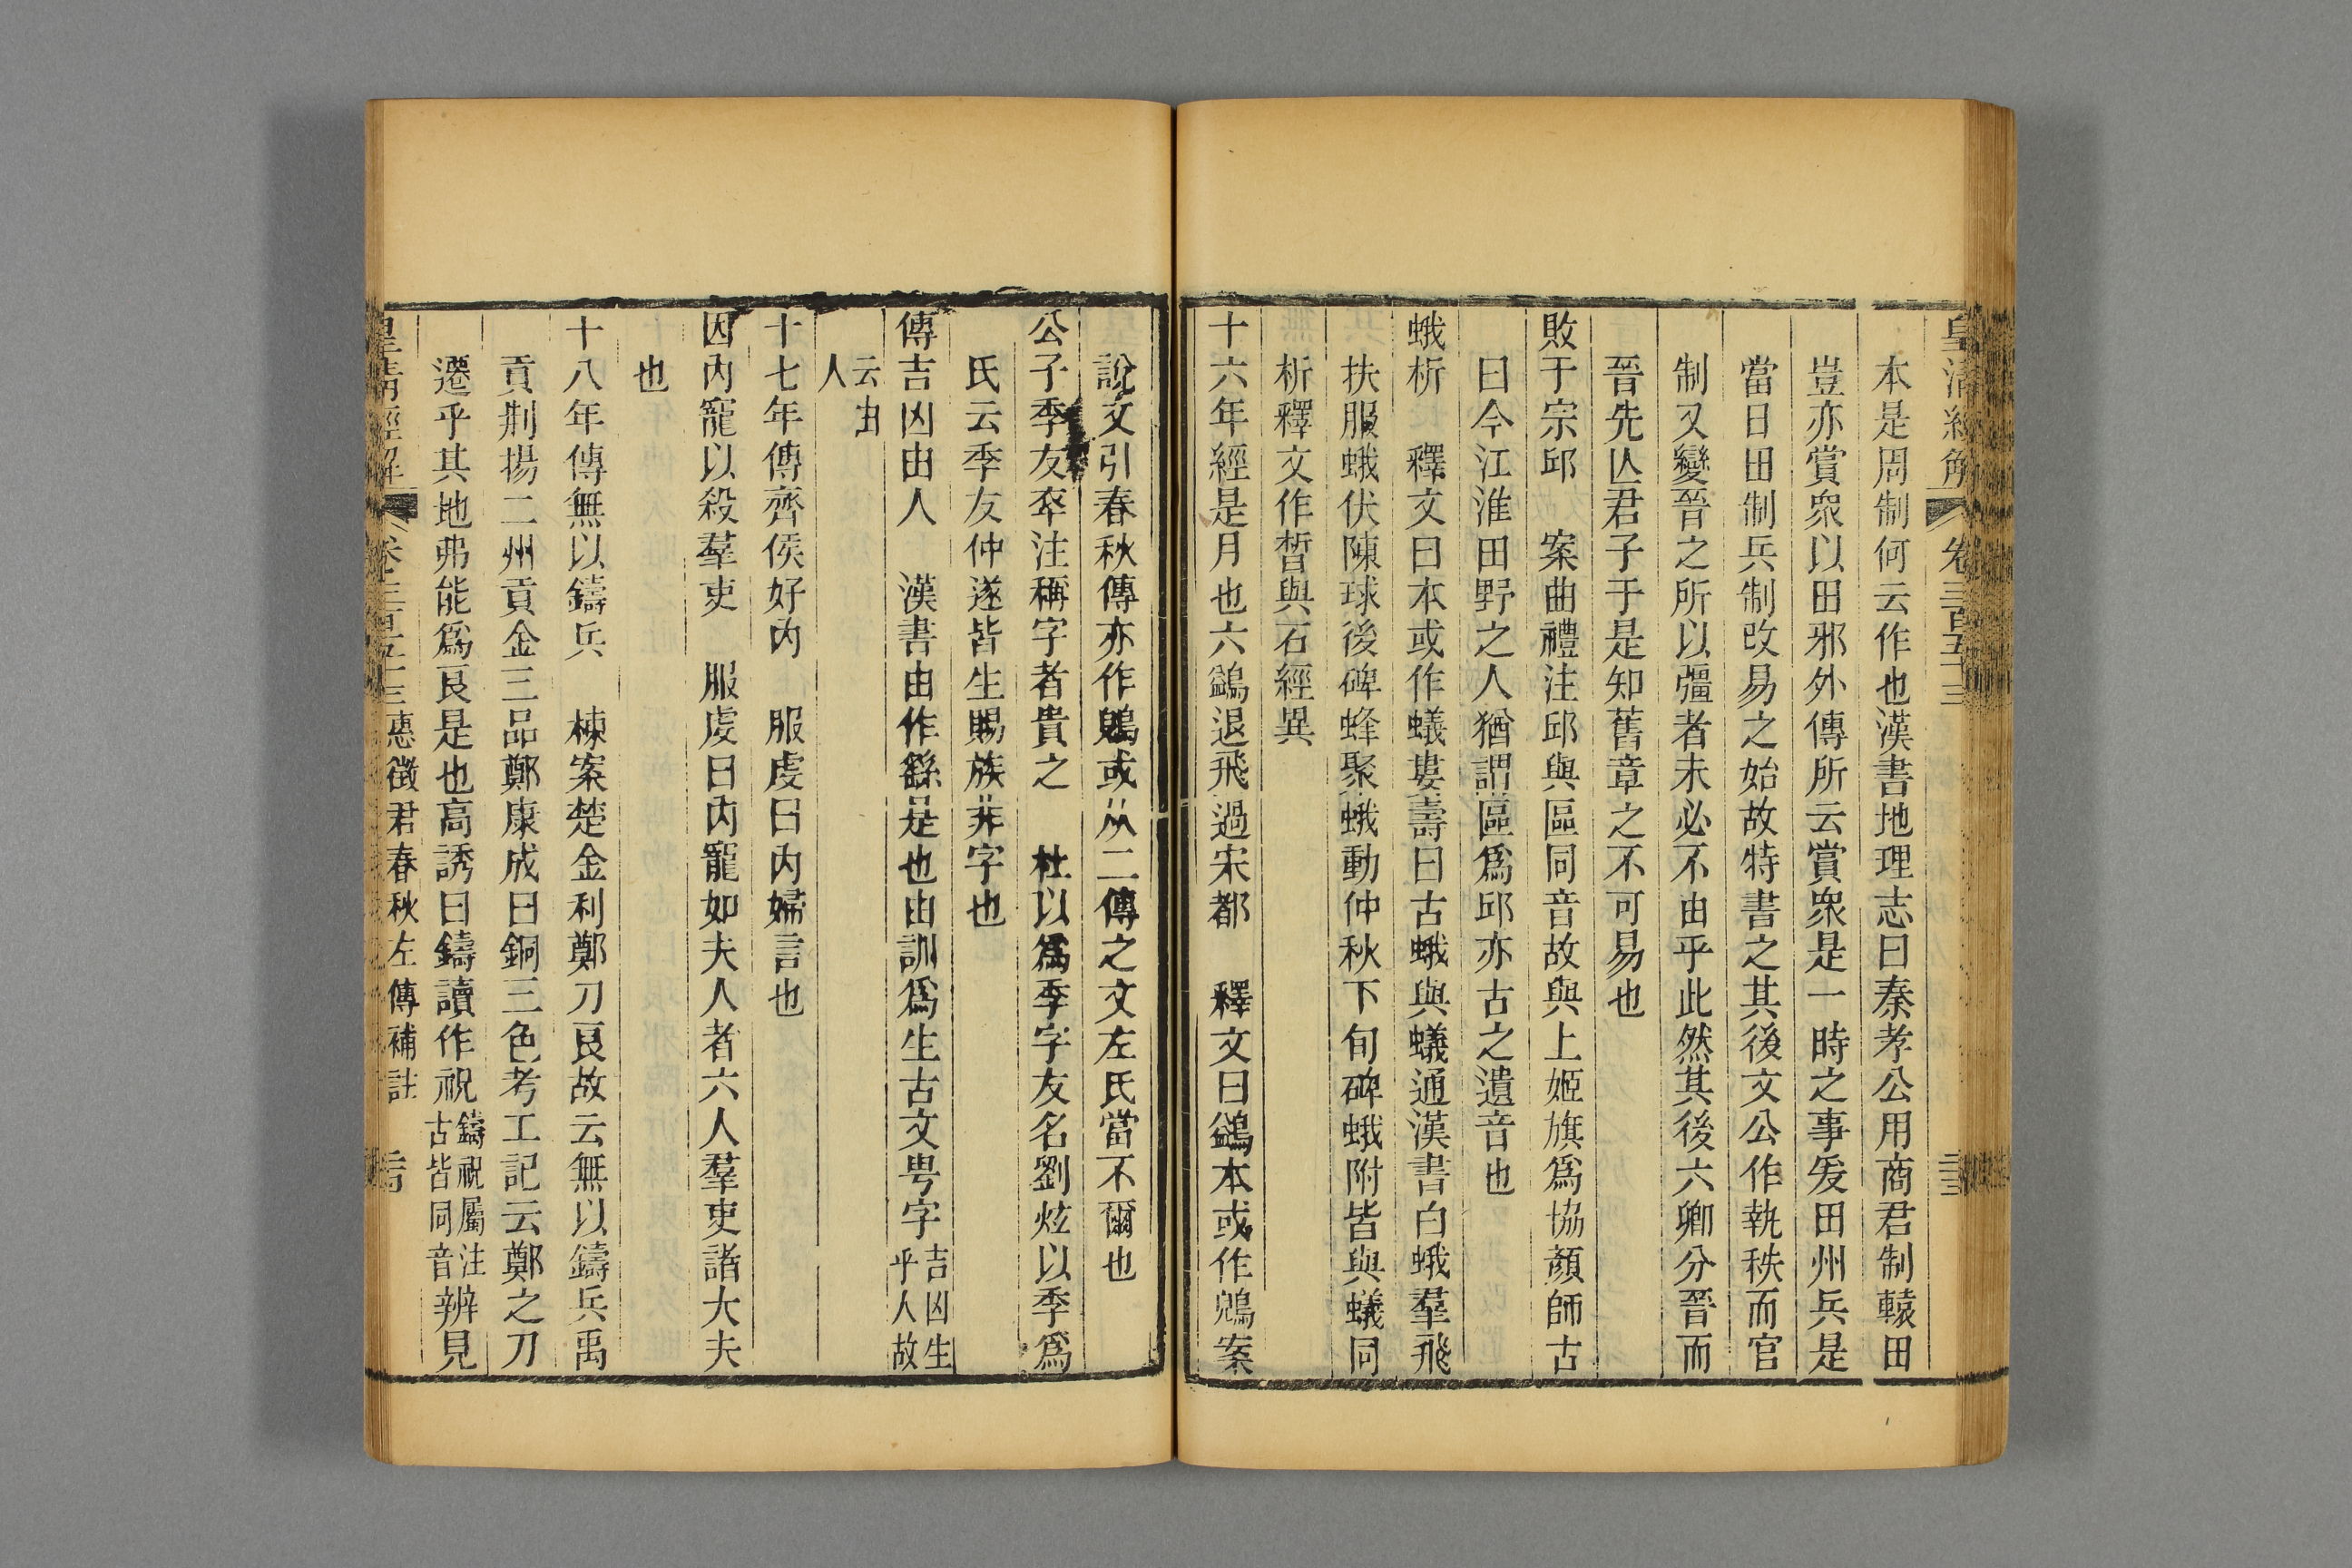 皇清經解 卷三百五十三
本是周制何云作也漢書地理志曰秦孝公用商君制轅田
豈亦賞衆以田邪外傳所云賞衆是一時之事爰田州兵是
當日田制兵制改易之始故特書之其後文公作執秩而官
制又變晉之所以彊者未必不由乎此然其後六卿分晉而
晉先亾君子于是知舊章之不可易也
敗于宗邱 案曲禮注邱與區同音故與上姬旗爲協顏師古
曰今江淮田野之人猶謂區爲邱亦古之遺音也
蛾析 釋文曰本或作蟻婁壽曰古蛾與蟻通漢書白蛾羣飛
扶服蛾伏陳球後碑蜂聚蛾動仲秋下旬碑蛾附皆與蟻同
析釋文作晳與石經異
十六年經是月也六鷁退飛過宋都 釋文曰鷁本或作鶂案
說文引春秋傳亦作鶂或从二傳之文左氏當不爾也
公子季友卒注稱字者貴之 杜以爲季字友名劉炫以季爲
氏云季友仲遂皆生賜族非字也
傳吉凶由人 漢書由作繇是也由訓爲生古文甹字吉凶生乎人故
云由人
十七年傳齊侯好內 服虔曰內婦言也
因內寵以殺羣吏 服虔曰內寵如夫人者六人羣吏諸大夫
也
十八年傳無以鑄兵 棟案楚金利鄭刀良故云無以鑄兵禹
貢荆揚二州貢金三品鄭康成曰銅三色考工記云鄭之刀
遷乎其地弗能爲良是也高誘曰鑄讀作祝鑄祝屬注古皆同音辨見
皇清經解 卷三百五十三 惠徵君春秋左傳補註